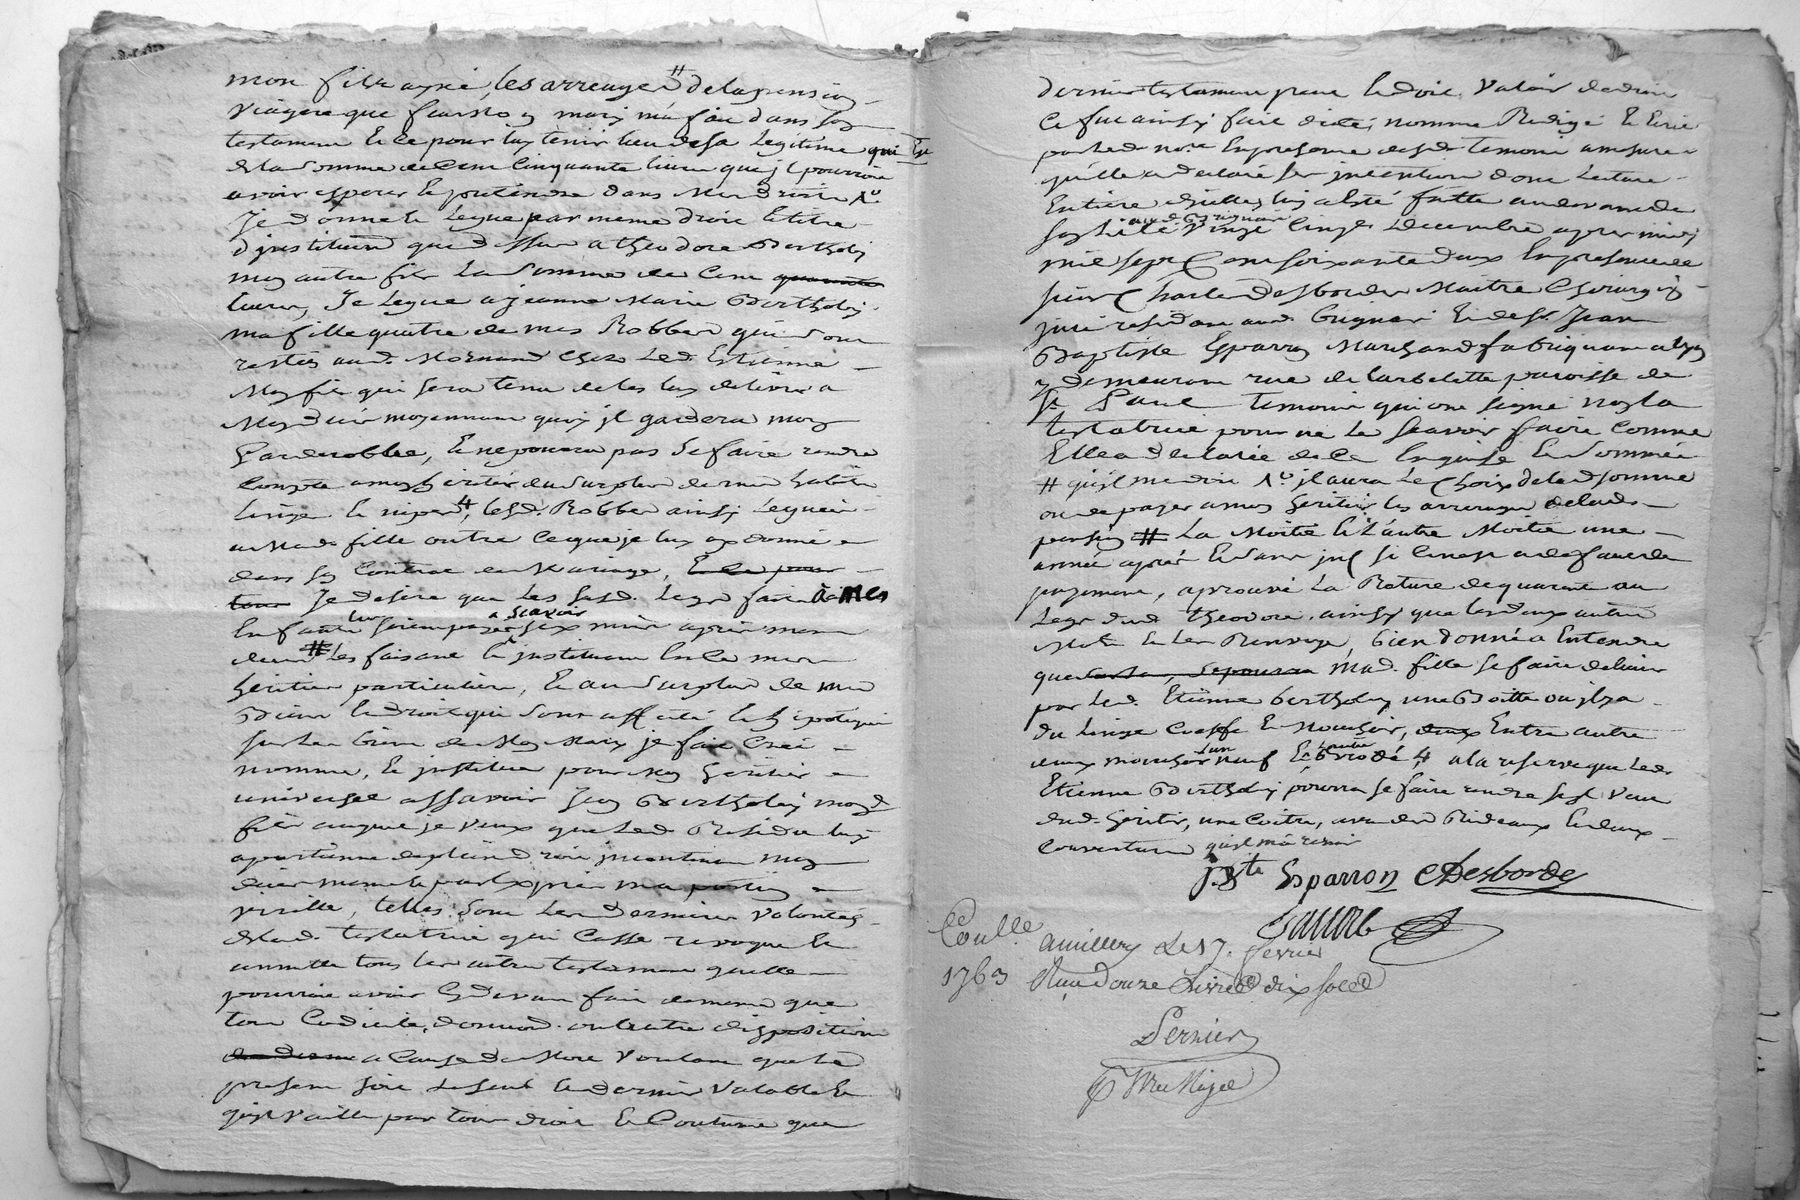 mon fils ayné les arrerages # de la pension
viagere que feu son mary m'a fait dans son
testament Et ce pour luy tenir lieu de sa Legitime qui Est
de la somme de cent cinquante livres quil pourroit
avoir esperer Et pretendre dans mes droits
Je donne Et Legue par meme droit Et titre
d'institution que dessus a theodore Bertholy
mon autre fils La somme de cent quarante
livres, Je Legue a jeanne Marie Bertholy
ma fille quatre de mes Robbes qui sont
restées aud. Mornand chés Led. Estienne
Mon fils qui sera tenu de les luy delivrer a
Mon deces moyennant quoy jl gardera mon
Garderobbe, Et ne pourra pas se faire rendre
compte a mon heritier du surplus de mes habits
Linge Et nipes 4, lesd. Robbes ainsy Leguées
a Mad. fille outre ce que je luy ay donné
dans son Contrat de Mariage, Et ce pour
tout Je desire que les susd. Legs faits à mes
Enfants leur soient payés a scavoir six mois apres mon
deces # Les faisant Et jnstituant En ce mes
heritiers particuliers, Et au surplus de mes
Biens Et droits qui sont affectés Et hipotequés
sur Les biens de Mon Mary je fais Créé
nomme, Et jnstitue pour mon heritier
universel assavoir Jean Bertholy mond.
fils auquel je veux que Led. Residu luy
apartienne de plein droit jncontinent mon
deces
telles sont Les dernieres volontés
de Lad. testatrice qui Casse revoque Et
annulle tous les autres testaments quelle
pourroit avoir Cy devant fait de meme que
tous Codicile, donnation ou autre disposition
a Cause de Mort voulant que Le
present soit Le seul Et dernier valable Et
quil vaille par tout droit Et Coutume que
dernier testament peut Et doit valoir
Ce fut ainsy fait dicté, nomme Redigé Et Ecrit
par Led. no.re En presence desd. temoins a mesure
quelle a declaré ses jntentions dont Lecture
Entiere d'icelles luy a été faitte
aud. Grignan
Vingt Cinq Decembre apres midy
mil sept Cent soixante deux En presence de
sieur Charles Desbordes Maitre Chirurgien
juré residant aud. Grignan Et de sr. Jean
Baptiste Esparron Marchand fabriquant a Lyon
y demeurant rue de Larbalette paroisse de
St. Paul temoins qui ont signé non la
testatrice pour ne Le scavoir faire Comme
Elle a declaré de ce Enquise Et sommée
# jl aura Le Choix de lad. somme
ou de payer a mon heritier les arrerages de lad.
pension # La Moitié Et L'autre Moitié une
année apres Et sans
payement, aprouvé La Rature de quarante au
Legs dud. theodore, ainsy que les deux autres
Mots Et Les Renvoys, bien donné a Entendre
que mad. fille se faire delivrer
par Led. Etienne Bertholy une Boitte ou jl y a
du Linge Coeffe Et Mouchoir, Entre autre
deux mouchoirs l'un neuf Et l'autre Brodé, 4 a la reserve que Led.
Etienne Bertholy pourra se faire rendre
dud. heritier, une Coitre, avec des Rideaux Et deux
couvertures
J. Bte Esparron CDesbordes
Conlle. a Millery Le 17. fevrier
1763 Reçu douze Livres dix sols
Pernier